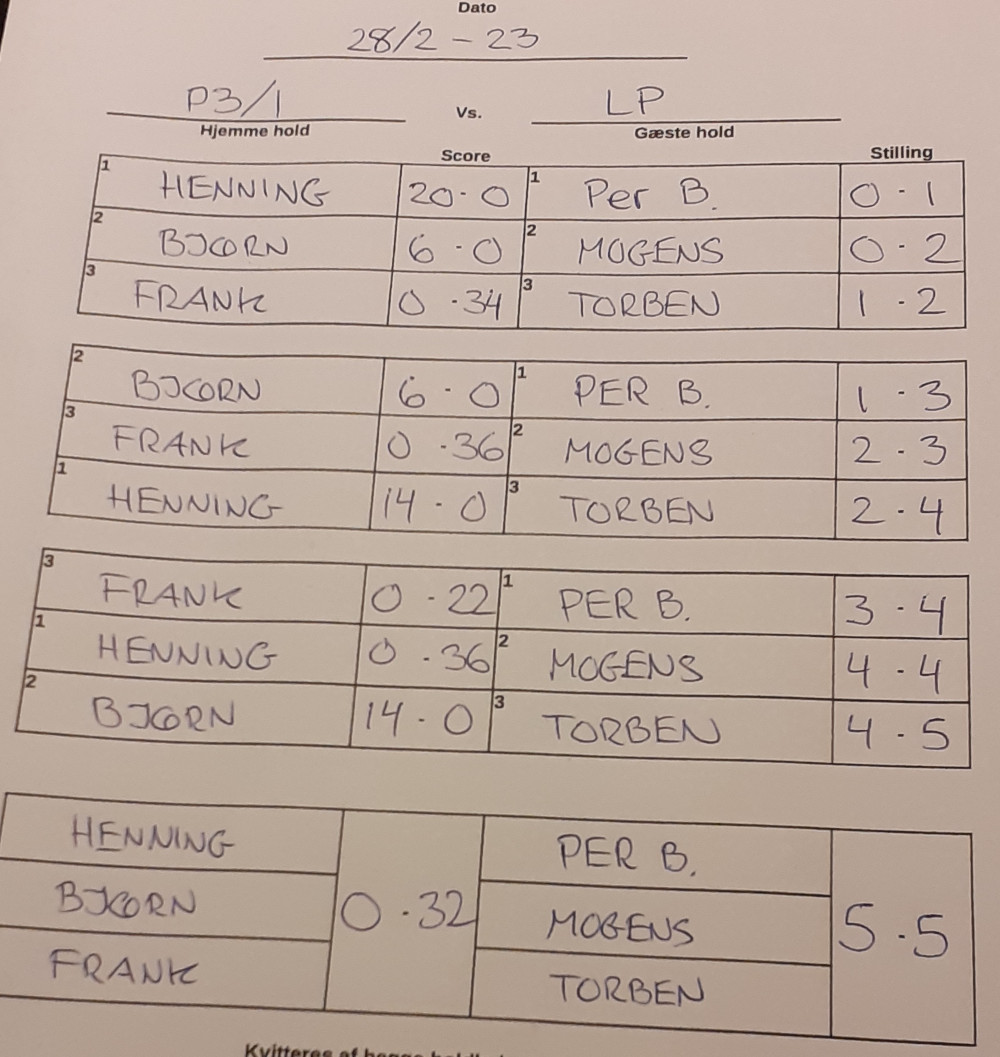 Dato
28/2 - 23
P3/1 Vs. LP
Hjemme hold Gæste hold
Score Stilling
1 HENNING 20 - 0 1 Per B. 0 - 1
2 BJØRN 6 - 0 2 MOGENS 0 - 2
3 FRANK 0 - 34 3 TORBEN 1 - 2
2 BJØRN 6 - 0 1 PER B. 1 - 3
3 FRANK 0 - 36 2 MOGENS 2 - 3
1 HENNING 14 - 0 3 TORBEN 2 - 4
3 FRANK 0 - 22 1 PER B. 3 - 4
1 HENNING 0 - 36 2 MOGENS 4 - 4
2 BJØRN 14 - 0 3 TORBEN 4 - 5
HENNING PER B.
BJØRN 0 - 32 MOGENS 5 - 5
FRANK TORBEN
Kvitteres af